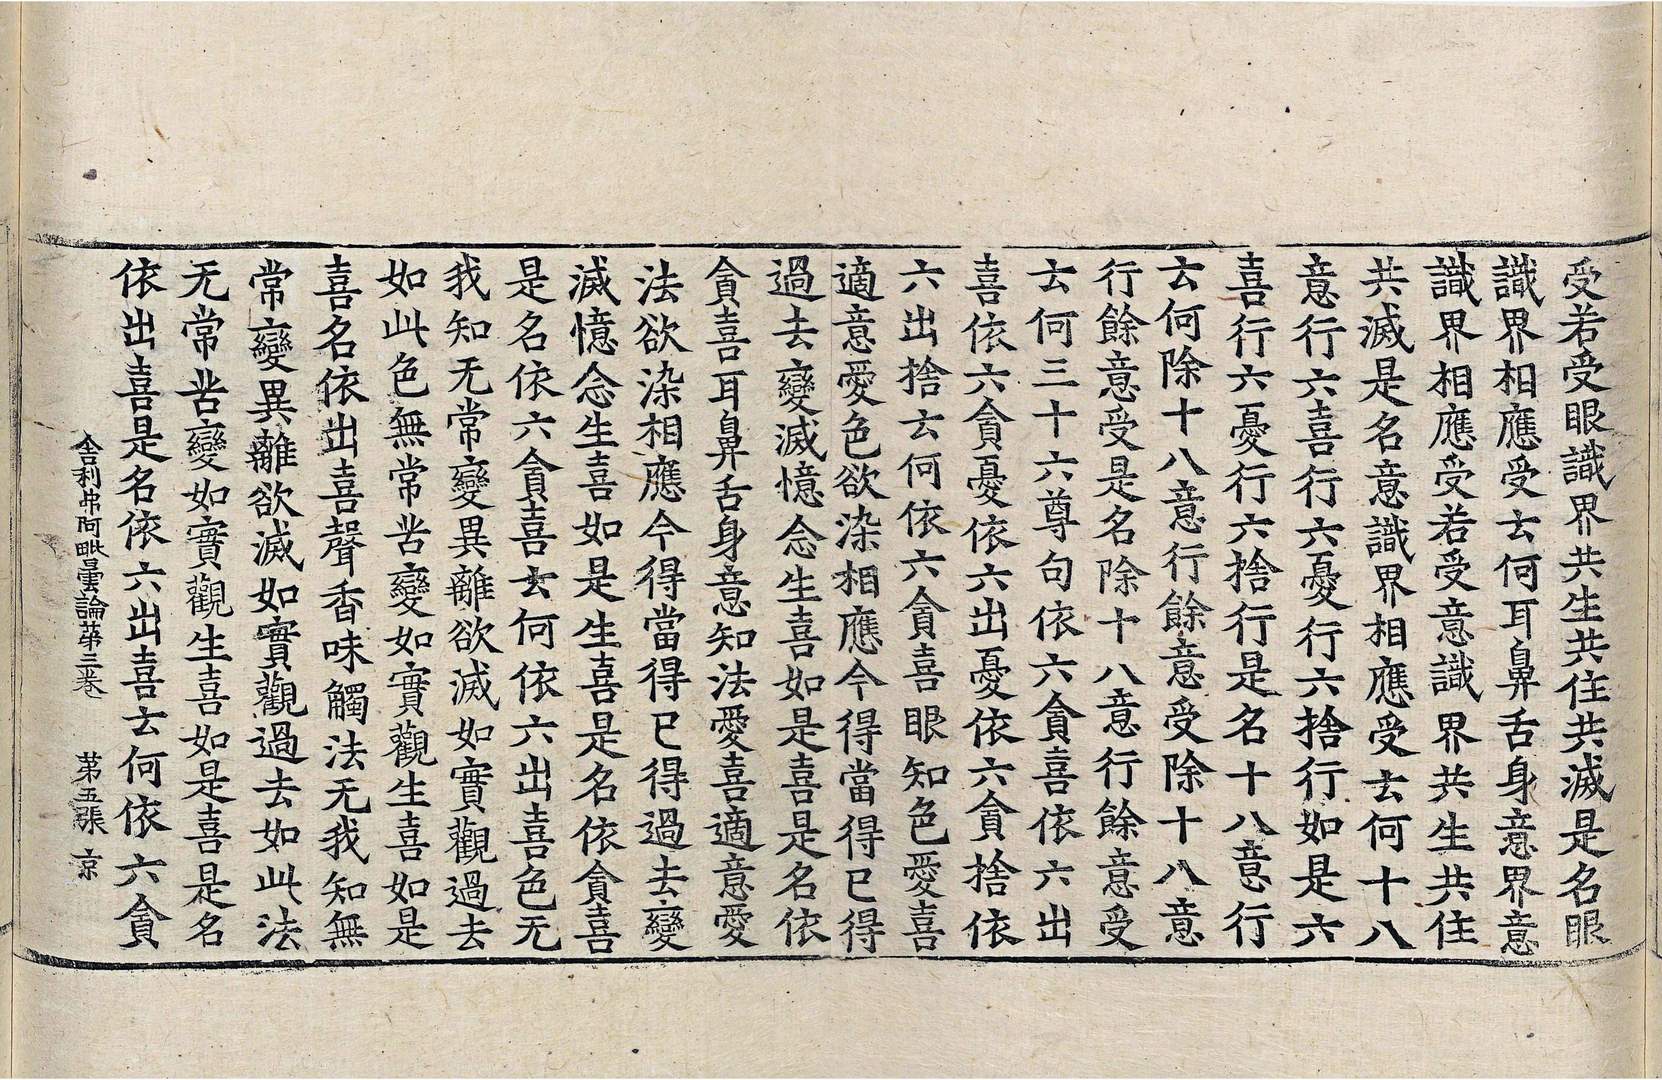 受若受眼識界共生共住共滅是名眼
識界相應受去何耳鼻舌身意界意
識界相應受若受意識界共生共住
共滅是名意識界相應受去何十八
意行六喜行六憂行六捨行如是六
喜行六憂行六捨行是名十八意行
去何除十八意行餘意受除十八意
行餘意受是名除十八意行餘意受
去何三十六尊句依六貪喜依六出
喜依六貪憂依六出憂依六貪捨依
六出捨去何依六貪喜眼知色愛喜
適意愛色欲染相應今得當得已得
過去變滅憶念生喜如是喜是名依
貪喜耳鼻舌身意知法愛喜適意愛
法欲染相應今得當得已得過去變
滅憶念生喜如是生喜是名依貪喜
是名依六貪喜去何依六出喜色无
我知无常變異離欲滅如實觀過去
如此色無常苦變如實觀生喜如是
喜名依出喜聲香味觸法无我知無
常變異離欲滅如實觀過去如此法
无常苦變如實觀生喜如是喜是名
依出喜是名依六出喜去何依六貪
舍利弗阿毗曇論苐三卷 苐五張 京